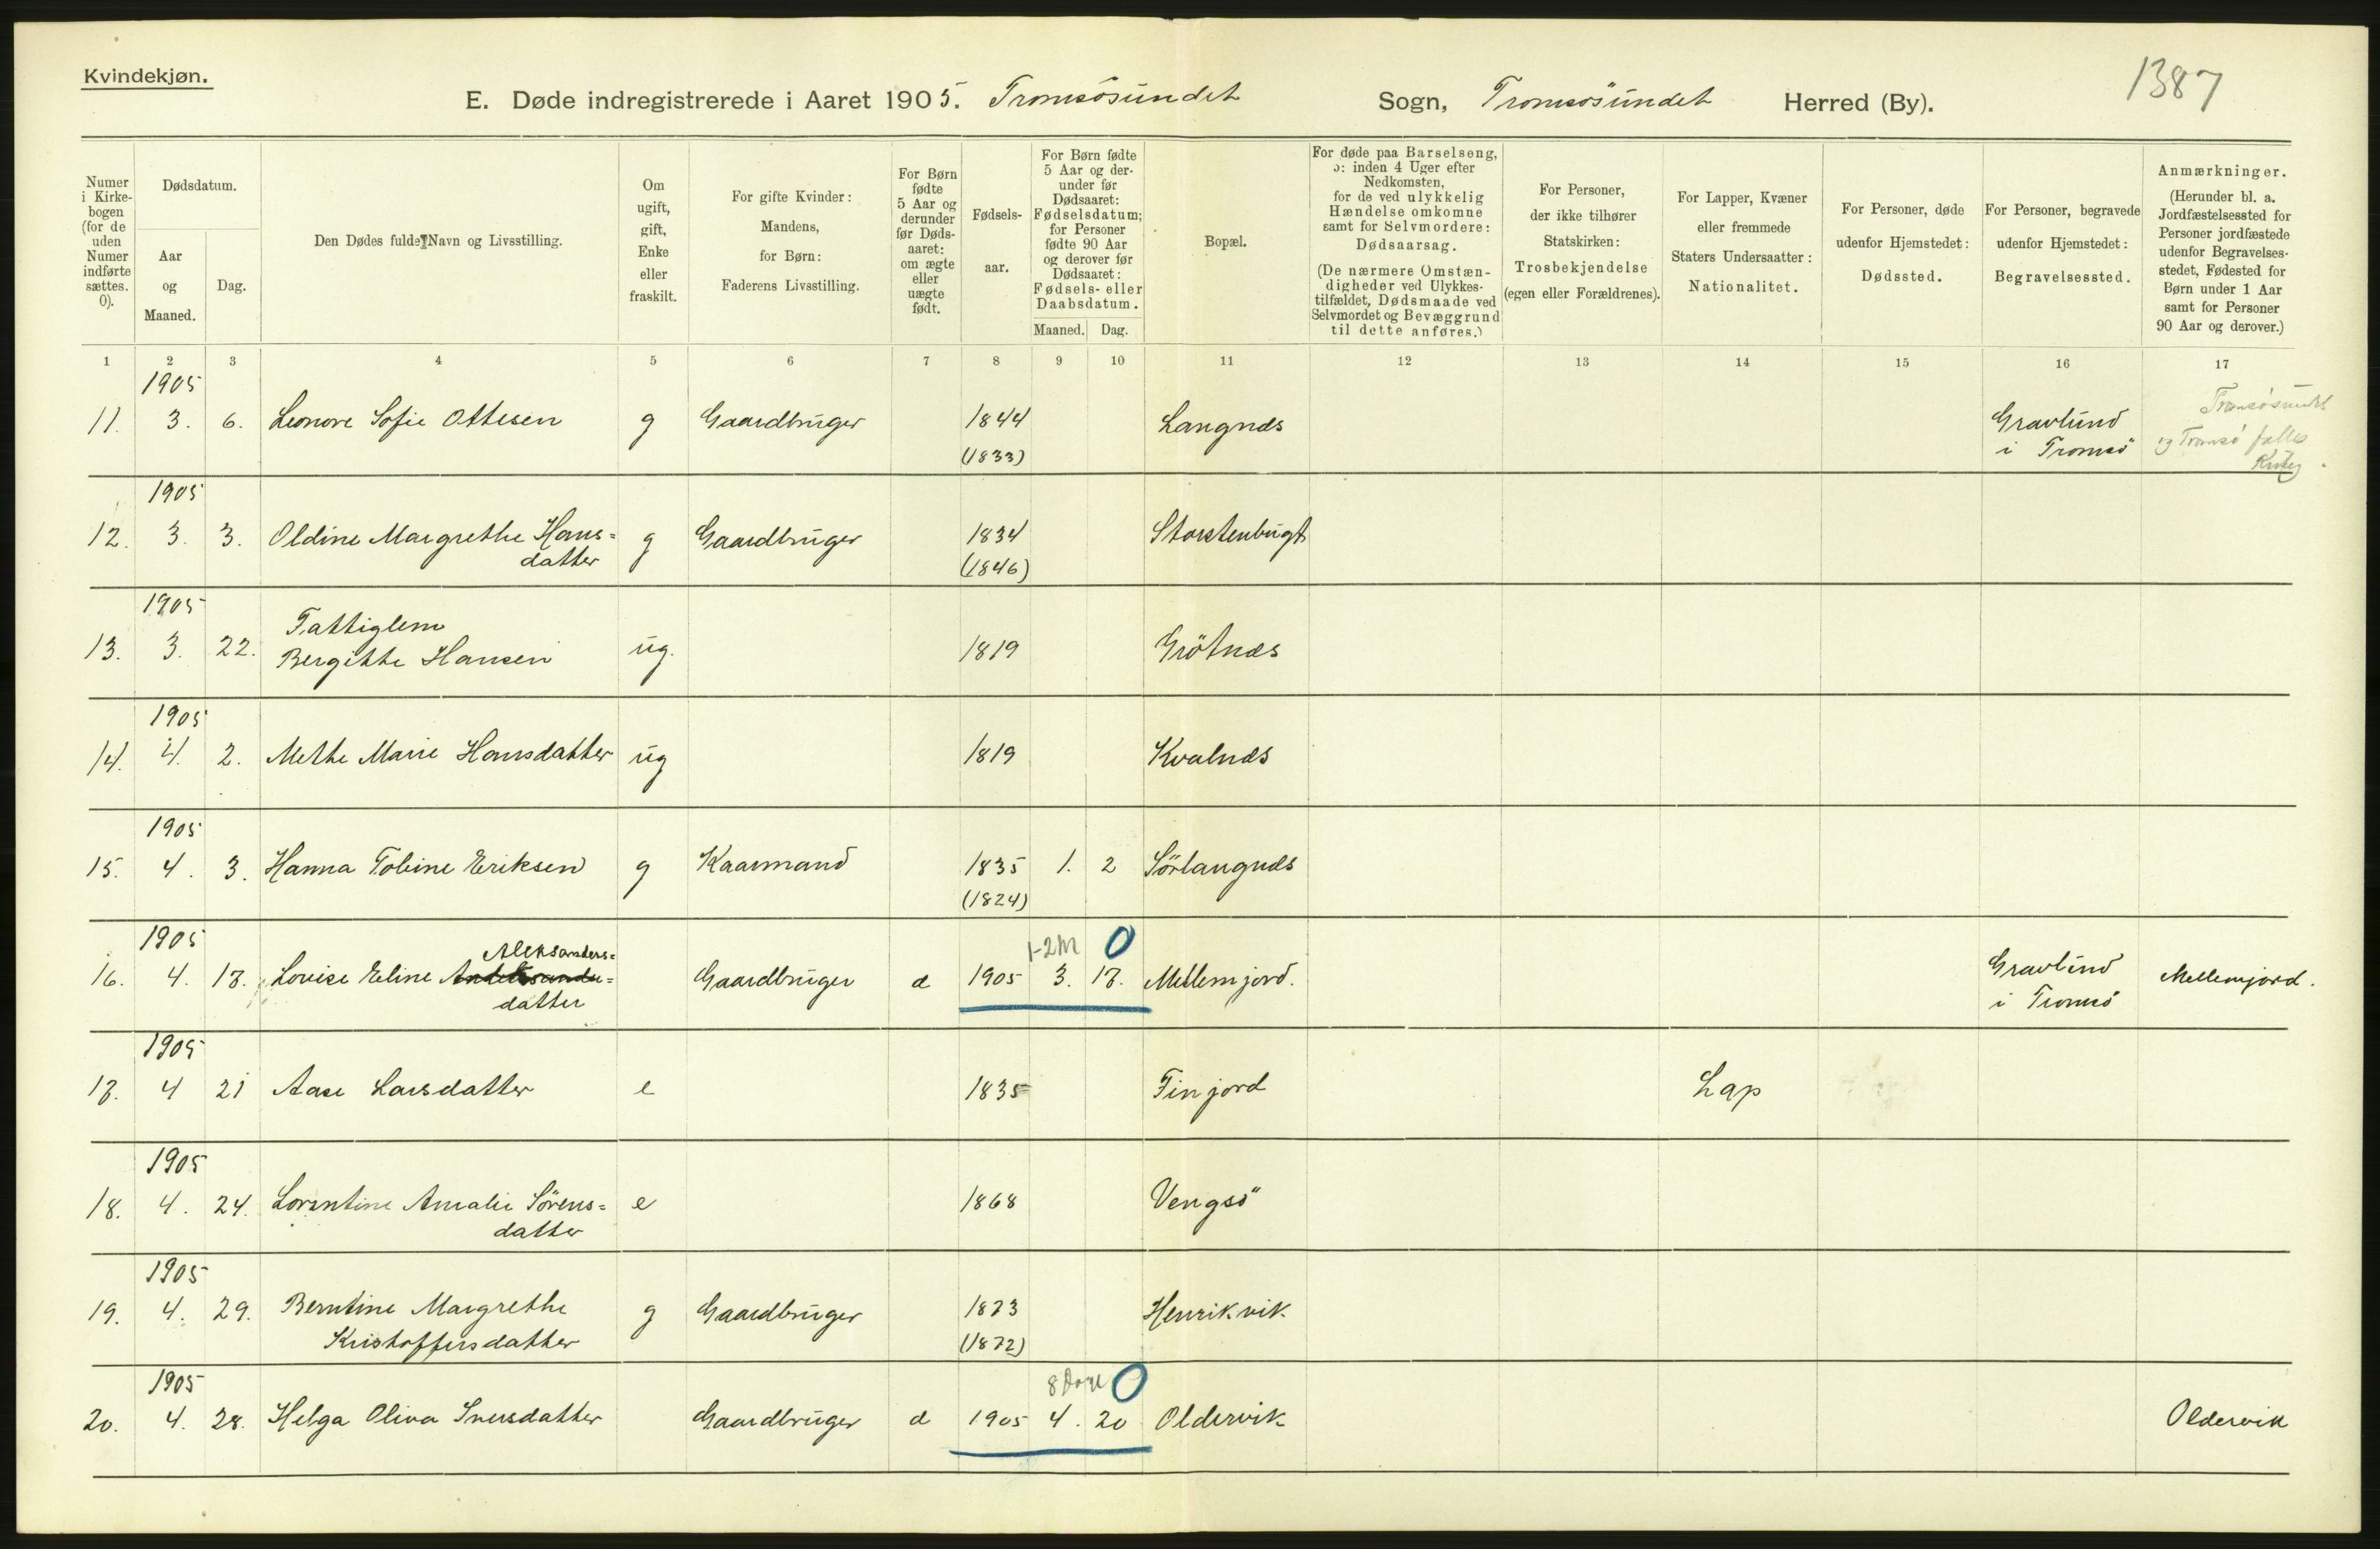 Kvindekjøn.
1387
E. Døde indregistrerede i Aaret 1905. Tromsösundet Sogn, Tromsösundet Herred (By).
Numer i Kirkebogen (for de uden Numer indførte sættes. 0).
Dødsdatum.
Aar og Maaned.
Dag.
Den Dødes fulde Navn og Livsstilling.
Om ugift, gift, Enke eller fraskilt.
For gifte Kvinder: Mandens, for Børn: Faderens Livsstilling.
For Børn fødte 5 Aar og derunder før Dødsaaret: om ægte eller uægte født.
Fødselsaar.
For Børn fødte 5 Aar og derunder før Dødsaaret: Fødselsdatum; for Personer fødte 90 Aar og derover før Dødsaaret: Fødsels- eller Daabsdatum.
Maaned. Dag.
Bopæl.
For døde paa Barselseng, ɔ: inden 4 Uger efter Nedkomsten, for de ved ulykkelig Hændelse omkomne samt for Selvmordere: Dødsaarsag.
(De nærmere Omstændigheder ved Ulykkestilfældet, Dødsmaade ved Selvmordet og Bevæggrund til dette anføres.)
For Personer, der ikke tilhører Statskirken: Trosbekjendelse (egen eller Forældrenes).
For Lapper, Kvæner eller fremmede Staters Undersaatter: Nationalitet.
For Personer, døde udenfor Hjemstedet: Dødssted.
For Personer, begravede udenfor Hjemstedet: Begravelsessted.
Anmærkninger.
(Herunder bl. a. Jordfæstelsessted for Personer jordfæstede udenfor Begravelsesstedet, Fødested for Børn under 1 Aar samt for Personer 90 Aar og derover.)
1 2 3 4 5 6 7 8 9 10 11 12 13 14 15 16 17
1905
11. 3. 6. Leonore Sofie Ottesen g Gaardbruger 1844 Langnæs Gravlund Tromsösundet
(1833) i Tromsö og Tromsö fælles
1905
12. 3. 3. Oldine Margrethe Hans= g Gaardbruger 1834 Storstenbugt
datter (1846)
1905
Fattiglem
13. 3. 22. Bergitte Hansen ug. 1819 Grötnæs
1905
14. 4. 2. Methe Marie Hansdatter ug 1819 Kvalnæs
1905
15. 4. 3. Hanna Tobine Eriksen g Kaarmand 1835 1. 2 Sörlangnæs
(1824)
1905 Aleksanders= 1-2M 0
16. 4. 17. Louise Eline Gaardbruger d 1905 3. 17. Mellemjord. Gravlund Mellemjord.
datter i Tromsö
1905
17. 4 21 Aase Larsdatter e 1835 Finjord Lap
1905
18. 4. 24. Lorentine Amalie Sörens= e 1868 Vengsö
datter
1905
19. 4. 29. Berntine Margrethe g Gaardbruger 1873 Henrikvik
Kristoffersdatter (1872)
1905 8 Dage 0
20. 4. 28. Helga Oliva Iversdatter Gaardbruger d 1905 4. 20 Oldervik Oldervik